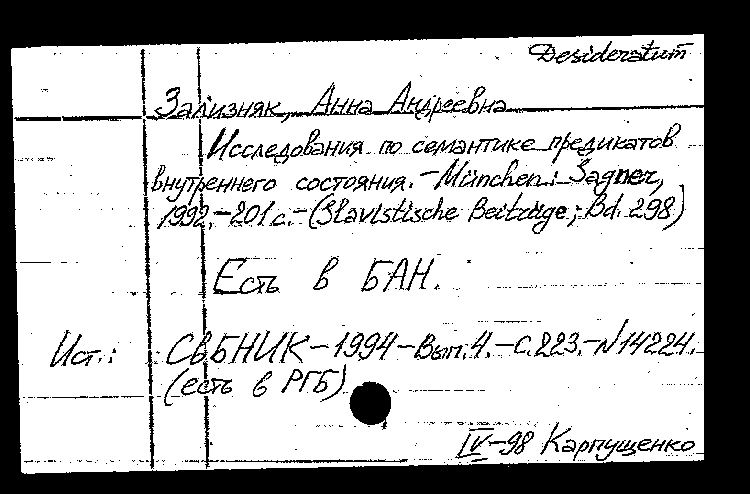 Desideratum
Зализняк, Анна Андреевна
Исследования по семантике предикатов
внутреннего состояния. – München: Sagner,
1992. – 201 с. – (Slavistische Beiträge; Bd. 298)
Есть в БАН.
Ист.: СвБНИК – 1994 – Вып. 4. – С. 223. – N 14224.
(есть в РГБ)
IV – 98 Карпущенко